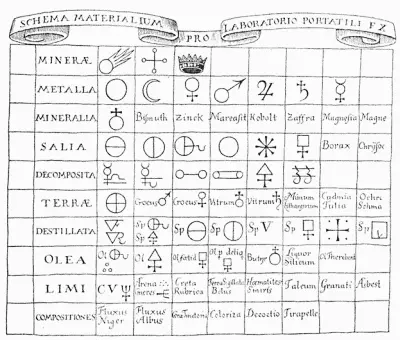 SCHEMA MATERIALIUM
PRO
LABORATORIO PORTATILI
MINERÆ
METALLA
MINERALIA Bismuth Zinck Marcasit Kobolt Zaffra Magnesia Magne
SALIA Borax Chrisoc
DECOMPOSITA
TERRÆ Crocus Crocus Vitrum Vitrum Minium Cadmia Tutia Ochra
DESTILLATA Sp Sp Sp Sp Sp V Sp Sp Sp
OLEA Ol Ol Ol fœtid Ol p deliq Butyr Liquor Silicum
LIMI CV Arena Creta Rubrica Terra Sigillata Bolus Hæmatites Smiris Talcum Granati Asbest
COMPOSITIONES Fluxus Niger Fluxus Albus Coloriza Decoctio Tirapelle